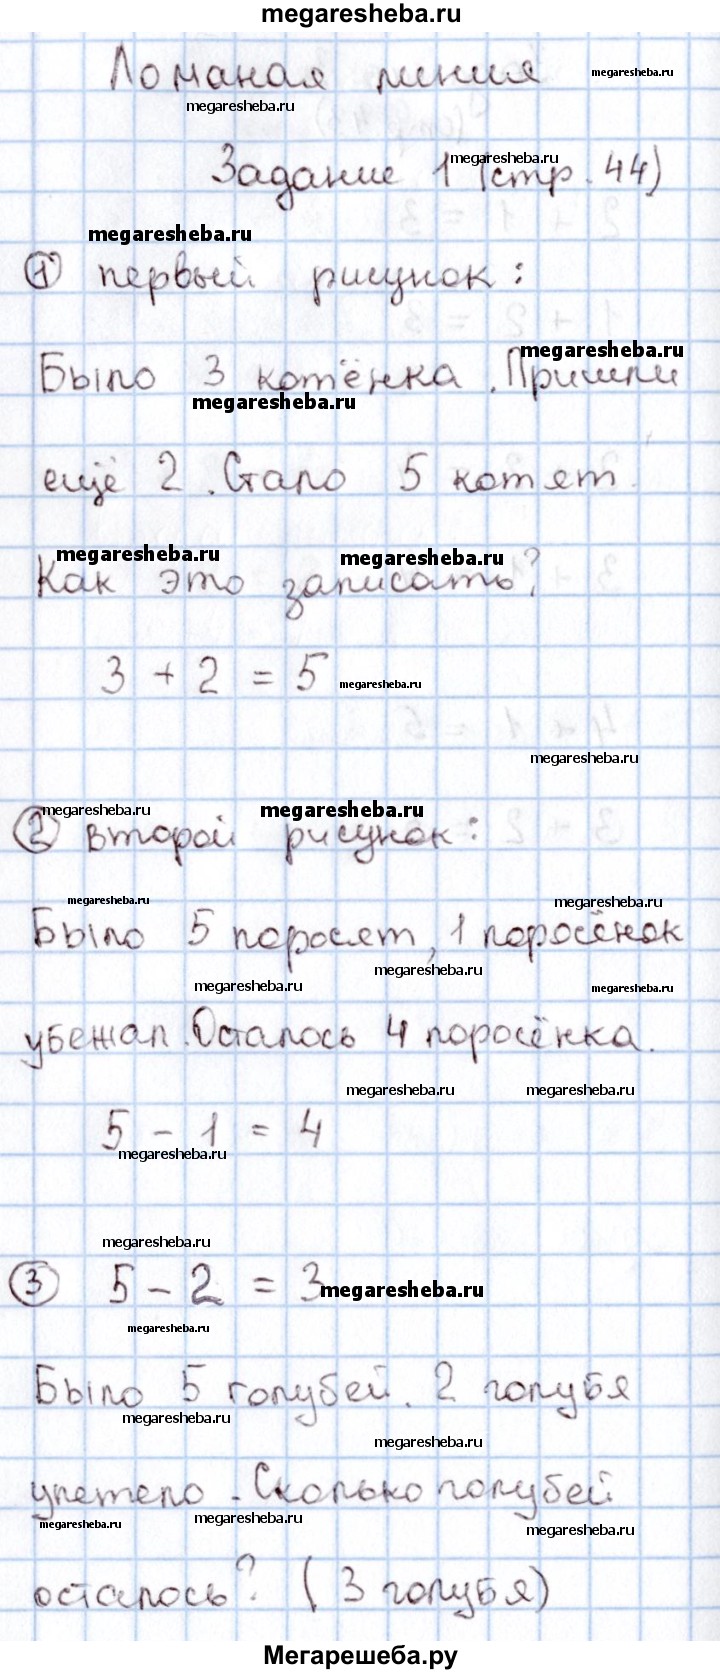 megaresheba.ru
Ломаная линия
megaresheba.ru
megaresheba.ru
Задание 1 (стр. 44)
megaresheba.ru
megaresheba.ru
1 первый рисунок:
megaresheba.ru
Было 3 котёнка. Пришли
megaresheba.ru
ещё 2. Стало 5 котят.
megaresheba.ru
megaresheba.ru
Как это записать?
3 + 2 = 5
megaresheba.ru
megaresheba.ru
megaresheba.ru
megaresheba.ru
2 второй рисунок:
megaresheba.ru
megaresheba.ru
Было 5 поросят, 1 поросёнок
megaresheba.ru
megaresheba.ru
megaresheba.ru
убежал. Осталось 4 поросёнка.
megaresheba.ru
megaresheba.ru
5 - 1 = 4
megaresheba.ru
megaresheba.ru
3 5 - 2 = 3
megaresheba.ru
megaresheba.ru
Было 5 голубей. 2 голубя
megaresheba.ru
megaresheba.ru
улетело. Сколько голубей
megaresheba.ru
megaresheba.ru
megaresheba.ru
осталось? (3 голубя)
Мегарешеба.ру